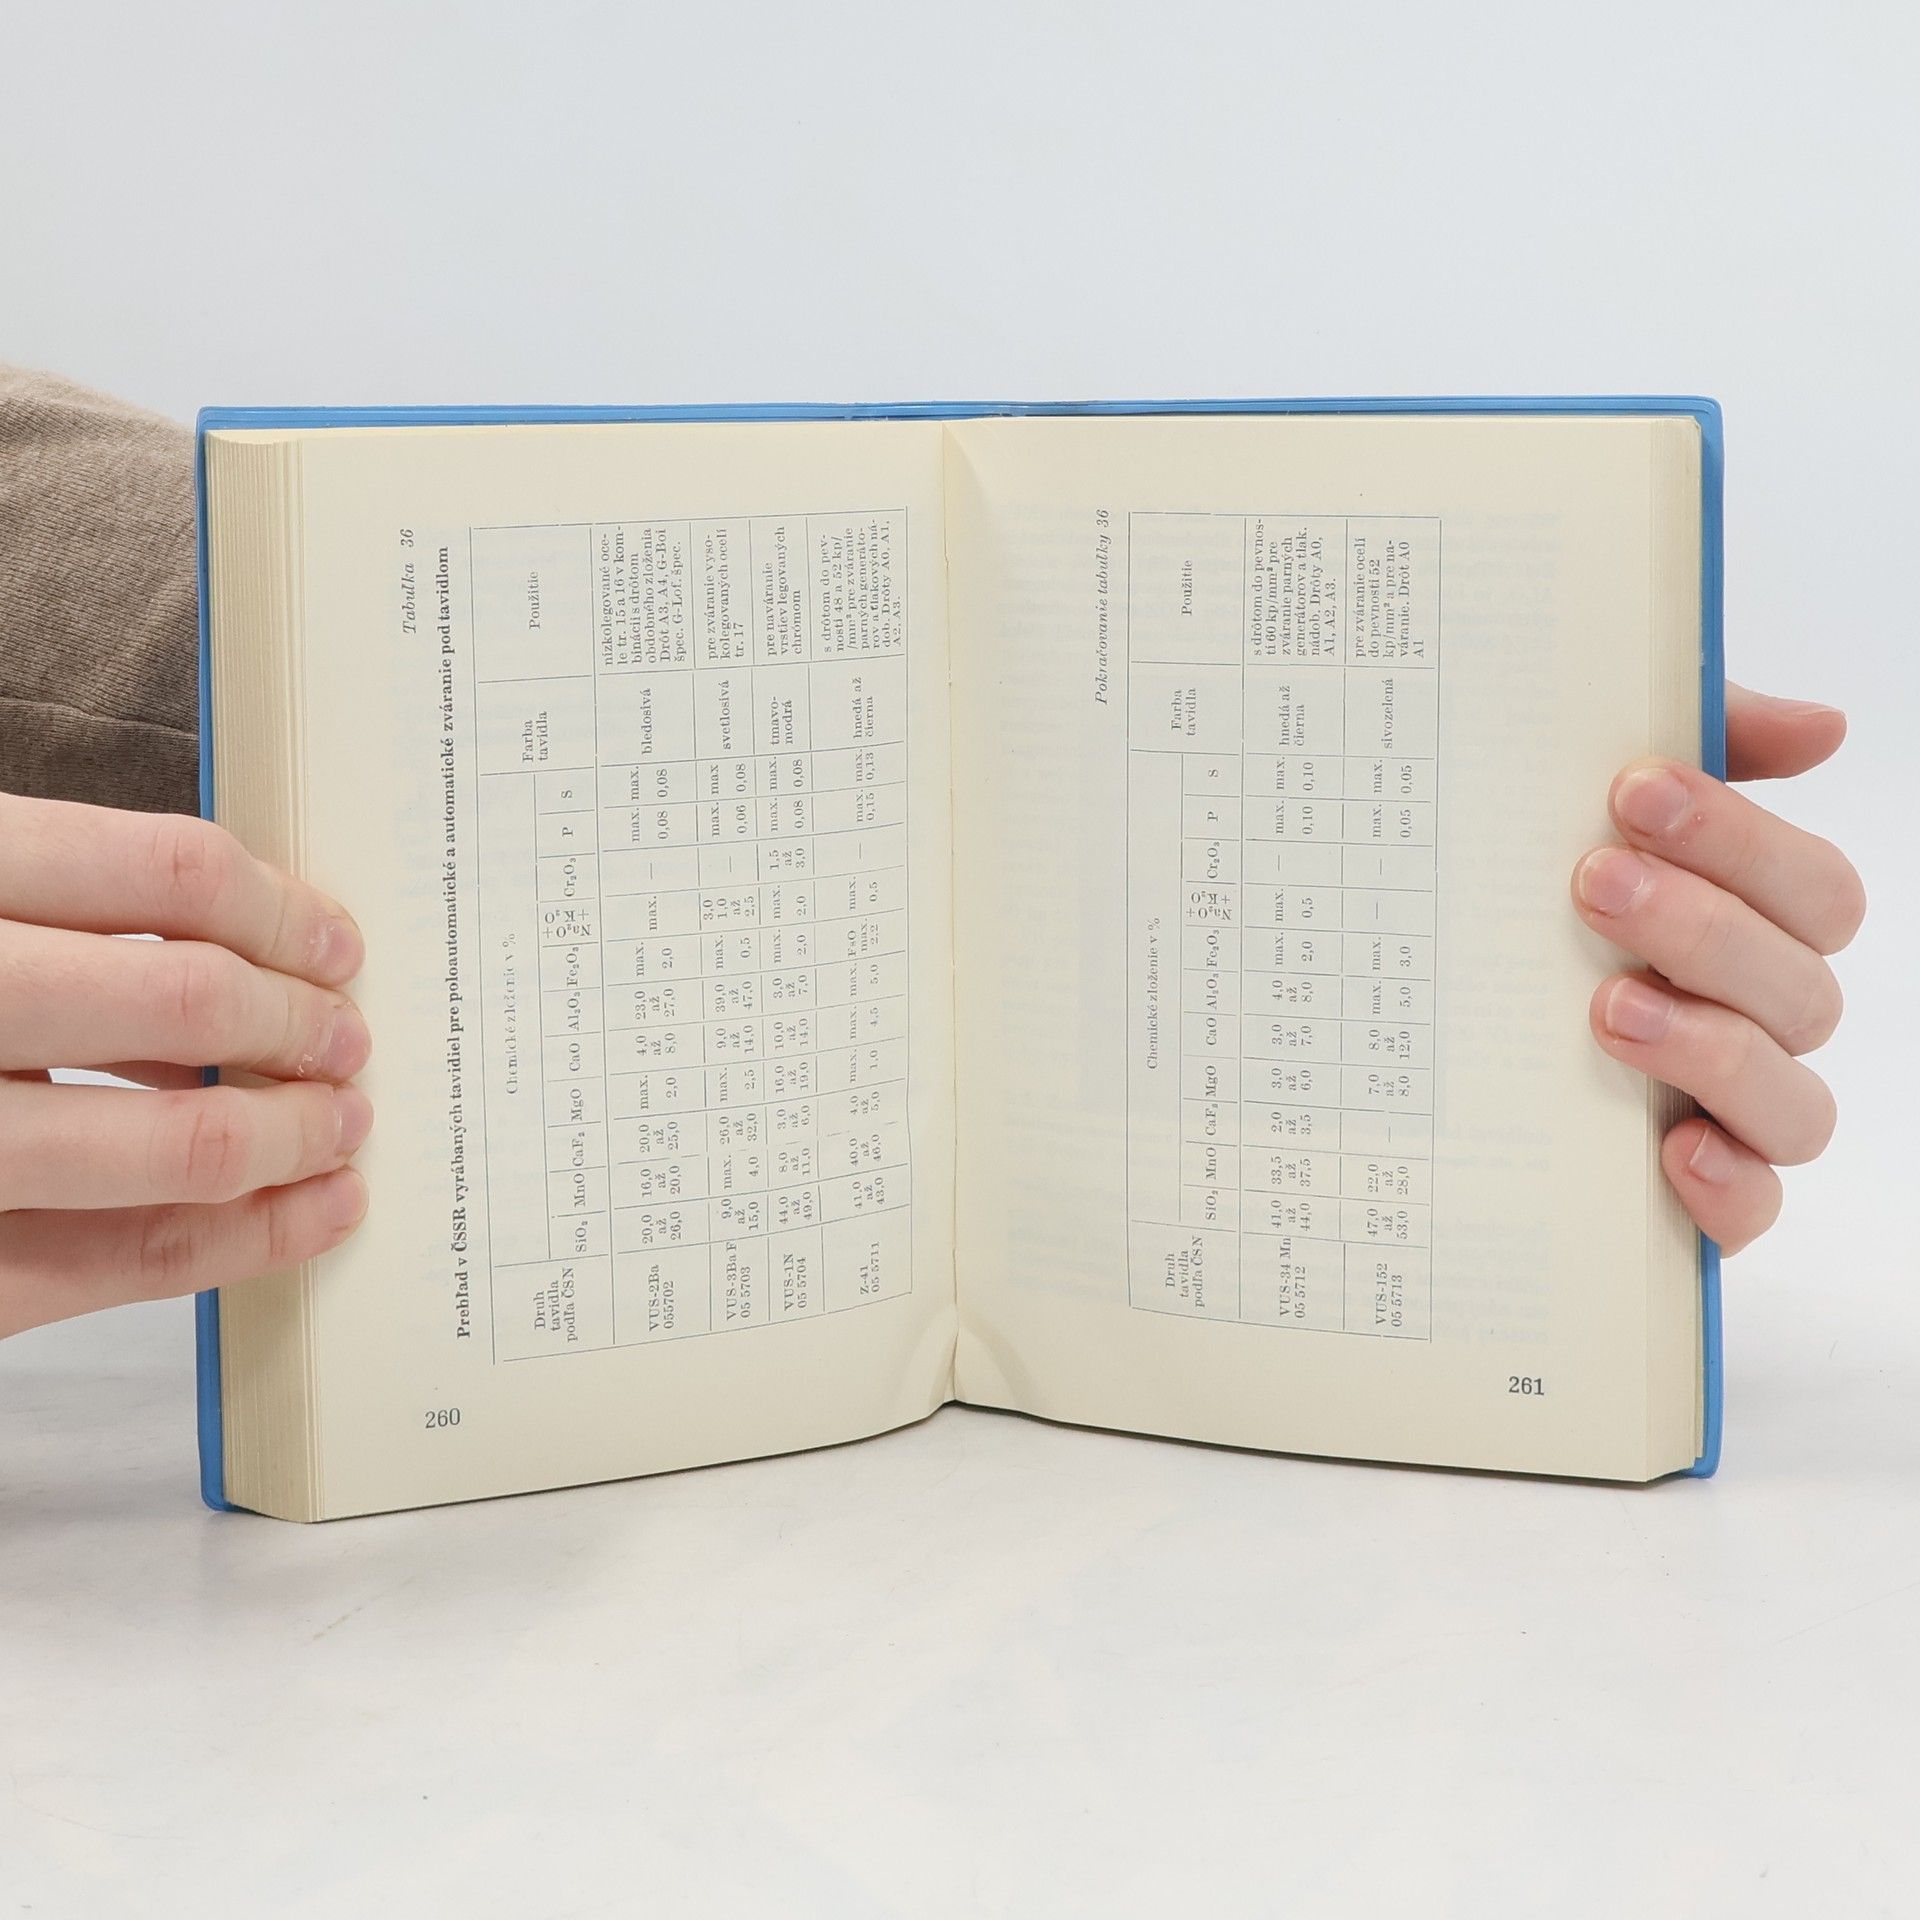 Tabulka 36
Prehľad v ČSSR vyrábaných tavidiel pre poloautomatické a automatické zváranie pod tavidlom
Druh
tavidla
podľa ČSN
Chemické zloženie v %
Farba
tavidla
Použitie
SiO₂ MnO CaF₂ MgO CaO Al₂O₃ Fe₂O₃ Na₂O + K₂O Cr₂O₃ P S
VUS-2Ba
055702
20,0 až 26,0
16,0 až 20,0
20,0 až 25,0
max. 2,0
4,0 až 8,0
23,0 až 27,0
max. 2,0
max.
—
max. 0,08
max. 0,08
bledosivá
nízkolegované oce-
le tr. 15 a 16 v kom-
binácii s drôtom
obdobného zloženia
Drôt A3, A4, G-Boi
špec. G-Lof. špec.
VUS-3Ba F
05 5703
9,0 až 15,0
max. 4,0
26,0 až 32,0
max. 2,5
9,0 až 14,0
39,0 až 47,0
max. 0,5
3,0
1,0 až 2,5
—
max. 0,06
max 0,08
svetlosivá
pre zváranie vyso-
kolegovaných ocelí
tr. 17
VUS-1N
05 5704
44,0 až 49,0
8,0 až 11,0
3,0 až 6,0
16,0 až 19,0
10,0 až 14,0
3,0 až 7,0
max. 2,0
max. 2,0
1,5 až 3,0
max. 0,08
max. 0,08
tmavo-
modrá
pre naváranie
vrstiev legovaných
chrómom
Z-41
05 5711
41,0 až 43,0
40,0 až 46,0
4,0 až 5,0
max. 1,0
max. 4,5
max. 5,0
FsO max. 2,2
max. 0.5
—
max. 0,15
max. 0,13
hnedá až
čierna
s drôtom do pev-
nosti 48 a 52 kp/
/mm² pre zváranie
parných generáto-
rov a tlakových ná-
dob. Drôty A0, A1,
A2, A3.
260
Pokračovanie tabuľky 36
Druh
tavidla
podľa ČSN
Chemické zloženie v %
Farba
tavidla
Použitie
SiO₂ MnO CaF₂ MgO CaO Al₂O₃ Fe₂O₃ Na₂O + K₂O Cr₂O₃ P S
VUS-34 Mn
05 5712
41,0 až 44,0
33,5 až 37,5
2,0 až 3,5
3,0 až 6,0
3,0 až 7,0
4,0 až 8,0
max. 2,0
max. 0,5
—
max. 0,10
max. 0,10
hnedá až
čierna
s drôtom do pevnos-
ti 60 kp/mm² pre
zváranie parných
generátorov a tlak.
nádob. Drôty A0,
A1, A2, A3.
VUS-152
05 5713
47,0 až 53,0
22,0 až 28,0
—
7,0 až 8,0
8,0 až 12,0
max. 5,0
max. 3,0
—
—
max. 0,05
max. 0,05
sivozelená
pre zváranie ocelí
do pevnosti 52
kp/mm² a pre na-
váranie. Drôt A0
A1
261